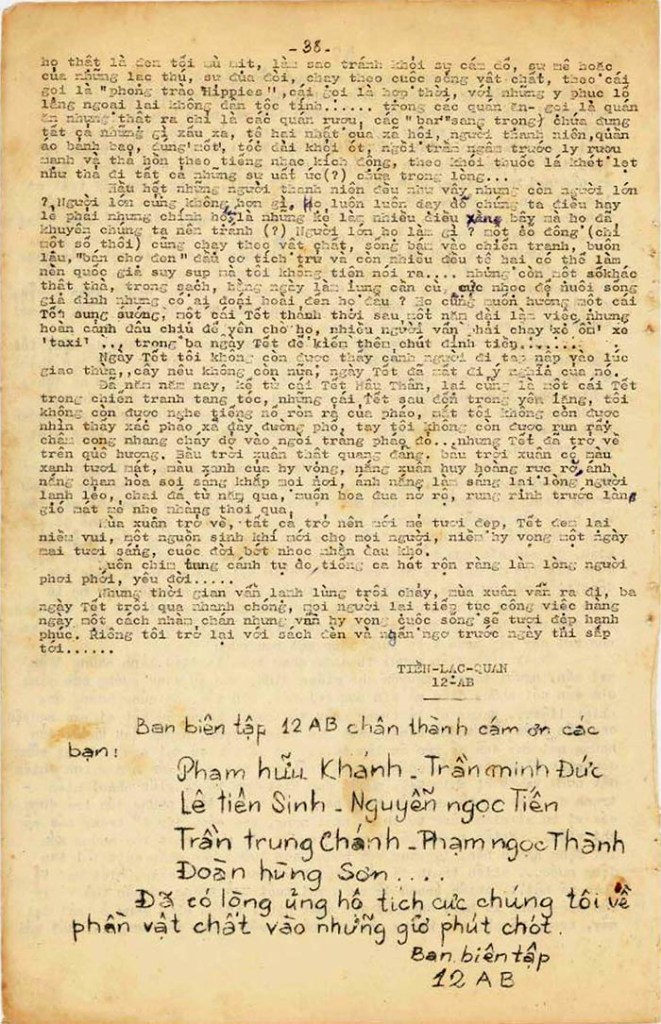 - 38 -
họ thật là đen tối mù mịt, làm sao tránh khỏi sự cám dỗ, sự mê hoặc
của những lạc thú, sự đua đòi, chạy theo cuộc sống vật chất, theo cái
gọi là "phong trào Hippies", cái gọi là hợp thời, với những y phục lố
lăng ngoại lai không dân tộc tính...... trong các quán ăn- gọi là quán
ăn nhưng thật ra chỉ là các quán rượu, các "bar"sang trong) chứa đựng
tất cả những gì xấu xa, tồ hai nhất của xã hội, người thanh niên,quần
áo bảnh bao, đúng'mốt', tóc dài khỏi ót, ngồi trầm ngâm trước ly rượu
mạnh và thả hồn theo tiếng nhạc kích động, theo khói thuốc lá khét lẹt
như thả đi tất cả những sự uất ức(?) chứa trong lòng...
Hầu hết những người thanh niên đều như vậy nhưng còn người lớn
?.Người lớn cũng không hơn gì, Họ luôn luôn dạy dỗ chúng ta điều hay
lẽ phải nhưng chính họ là những kẻ làm nhiều điều xằng bậy mà họ đã
khuyên chúng ta nên tránh (?) Người lớn họ làm gì ? một số đông (chỉ
một số thôi) cũng chạy theo vật chất, sống bám vào chiến tranh, buôn
lậu,"bán chợ đen" đầu cơ tích trữ và còn nhiều điều tồ hai có thể làm
nền quốc gia suy sụp mà tôi không tiện nói ra.... nhưng còn một sốkhác
thật thà, trong sạch, hằng ngày làm lụng cần cù, cực nhọc để nuôi sống
gia đình nhưng có ai đoái hoài đến họ đâu ? Họ cũng muốn hưởng một cái
Tết sung sướng, một cái Tết thảnh thơi sau một năm dài làm việc nhưng
hoàn cảnh đâu chịu để yên cho họ, nhiều người vẫn phải chạy 'xe ôm' xe
'taxi' ... trong ba ngày Tết để kiếm thêm chút đỉnh tiền........
Ngày Tết tôi không còn được thấy cảnh người đi tấp nập vào lúc
giao thừa, cây nêu không còn nữa, ngày Tết đã mất đi ý nghĩa của nó.
Đã năm năm nay, kể từ cái Tết Mậu Thân, lại cũng là một cái Tết
trong chiến tranh tang tóc, những cái Tết sau đến trong yên lặng, tôi
không còn được nghe tiếng nổ ròn rã của pháo, mắt tôi không còn được
nhìn thấy xác pháo xả đầy đường phố, tay tôi không còn được run rẩy
châm cọng nhang cháy dở vào ngòi tràng pháo đỏ...nhưng Tết đã trở về
trên quê hương. Bầu trời xuân thật quang đãng. bầu trời xuân có màu
xanh tươi mát, màu xanh của hy vọng, nắng xuân huy hoàng rực rỡ,ánh
nắng chan hòa soi sáng khắp mọi nơi, ánh nắng làm sáng lại lòng người
lạnh lẽo, chai đá từ năm qua, muôn hoa đua nở rộ, rung rinh trước làn
gió mát mẻ nhẹ nhàng thổi qua,
Mùa xuân trở về, tất cả trở nên mới mẻ tươi đẹp, Tết đem lại
niềm vui, một nguồn sinh khí mới cho mọi người, niềm hy vọng một ngày
mai tươi sáng, cuộc đời bớt nhọc nhằn đau khổ.
Muôn chim tung cánh tự do, tiếng ca hót rộn ràng làm lòng người
phơi phới, yêu đời.....
Nhưng thời gian vẫn lạnh lùng trôi chảy, mùa xuân vẫn ra đi, ba
ngày Tết trôi qua nhanh chóng, mọi người lại tiếp tục công việc hàng
ngày một cách nhàm chán nhưng vẫn hy vọng cuộc sống sẽ tươi đẹp hạnh
phúc. Riêng tôi trở lại với sách đèn và ngẩn ngơ trước ngày thi sắp
tới......
TIẾN-LẠC-QUAN
12-AB
Ban biên tập 12 AB chân thành cám ơn các
bạn:
Phạm hữu Khánh - Trần minh Đức
Lê tiên Sinh - Nguyễn ngọc Tiến
Trần trung Chánh - Phạm ngọc Thành
Đoàn hùng Sơn ....
Đã có lòng ủng hộ tích cực chúng tôi về
phần vật chất vào những giờ phút chót.
Ban biên tập
12 AB